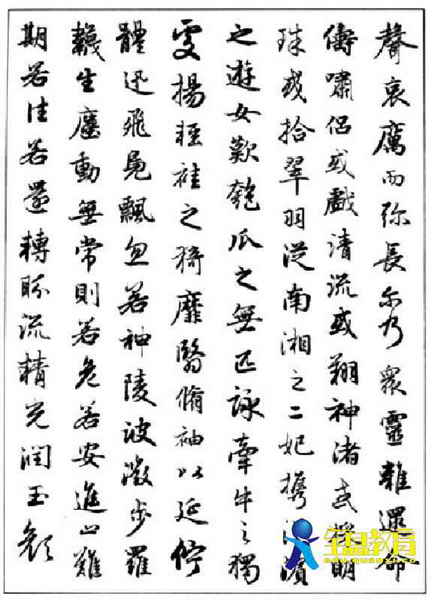 聲哀厲而弥長尔乃衆靈雜遝命
儔嘯侣或戲清流或翔神渚或採明
珠或拾翠羽從南湘之二妃攜漢濱
之遊女歎匏瓜之無匹詠牽牛之獨
處揚輕袿之猗靡翳脩袖以延佇
體迅飛鳧飄忽若神陵波微步羅
韈生塵動無常則若危若安進止難
期若往若還轉眄流精光潤玉顔
教育